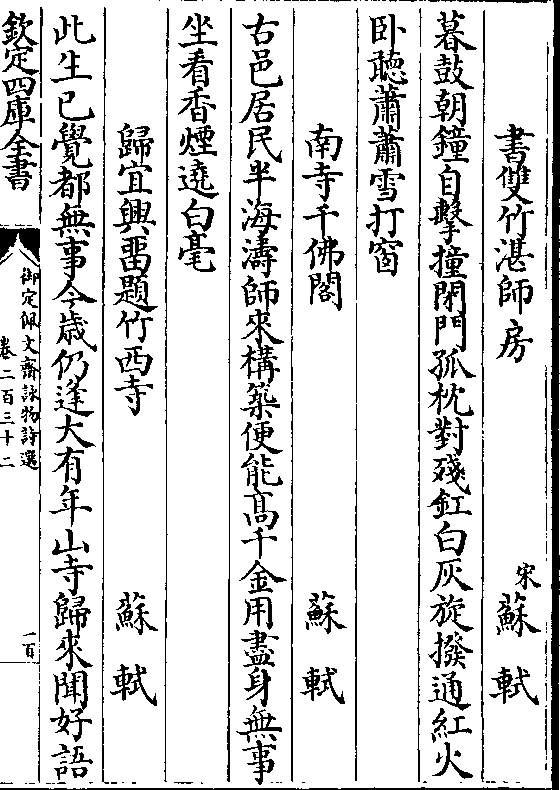 書雙竹湛師房
宋蘇軾
暮鼓朝鐘自擊撞閉門孤枕對殘釭白灰旋撥通紅火
卧聽蕭蕭雪打窗
南寺千佛閣
蘇軾
古邑居民半海濤師來構築便能髙千金用盡身無事
坐看香煙遶白毫
歸宜興畱題竹西寺
蘇軾
此生已覺都無事今歳仍逢大有年山寺歸來聞好語
欽定四庫全書
御定佩文齋詠物詩選
卷二百三十二
一百